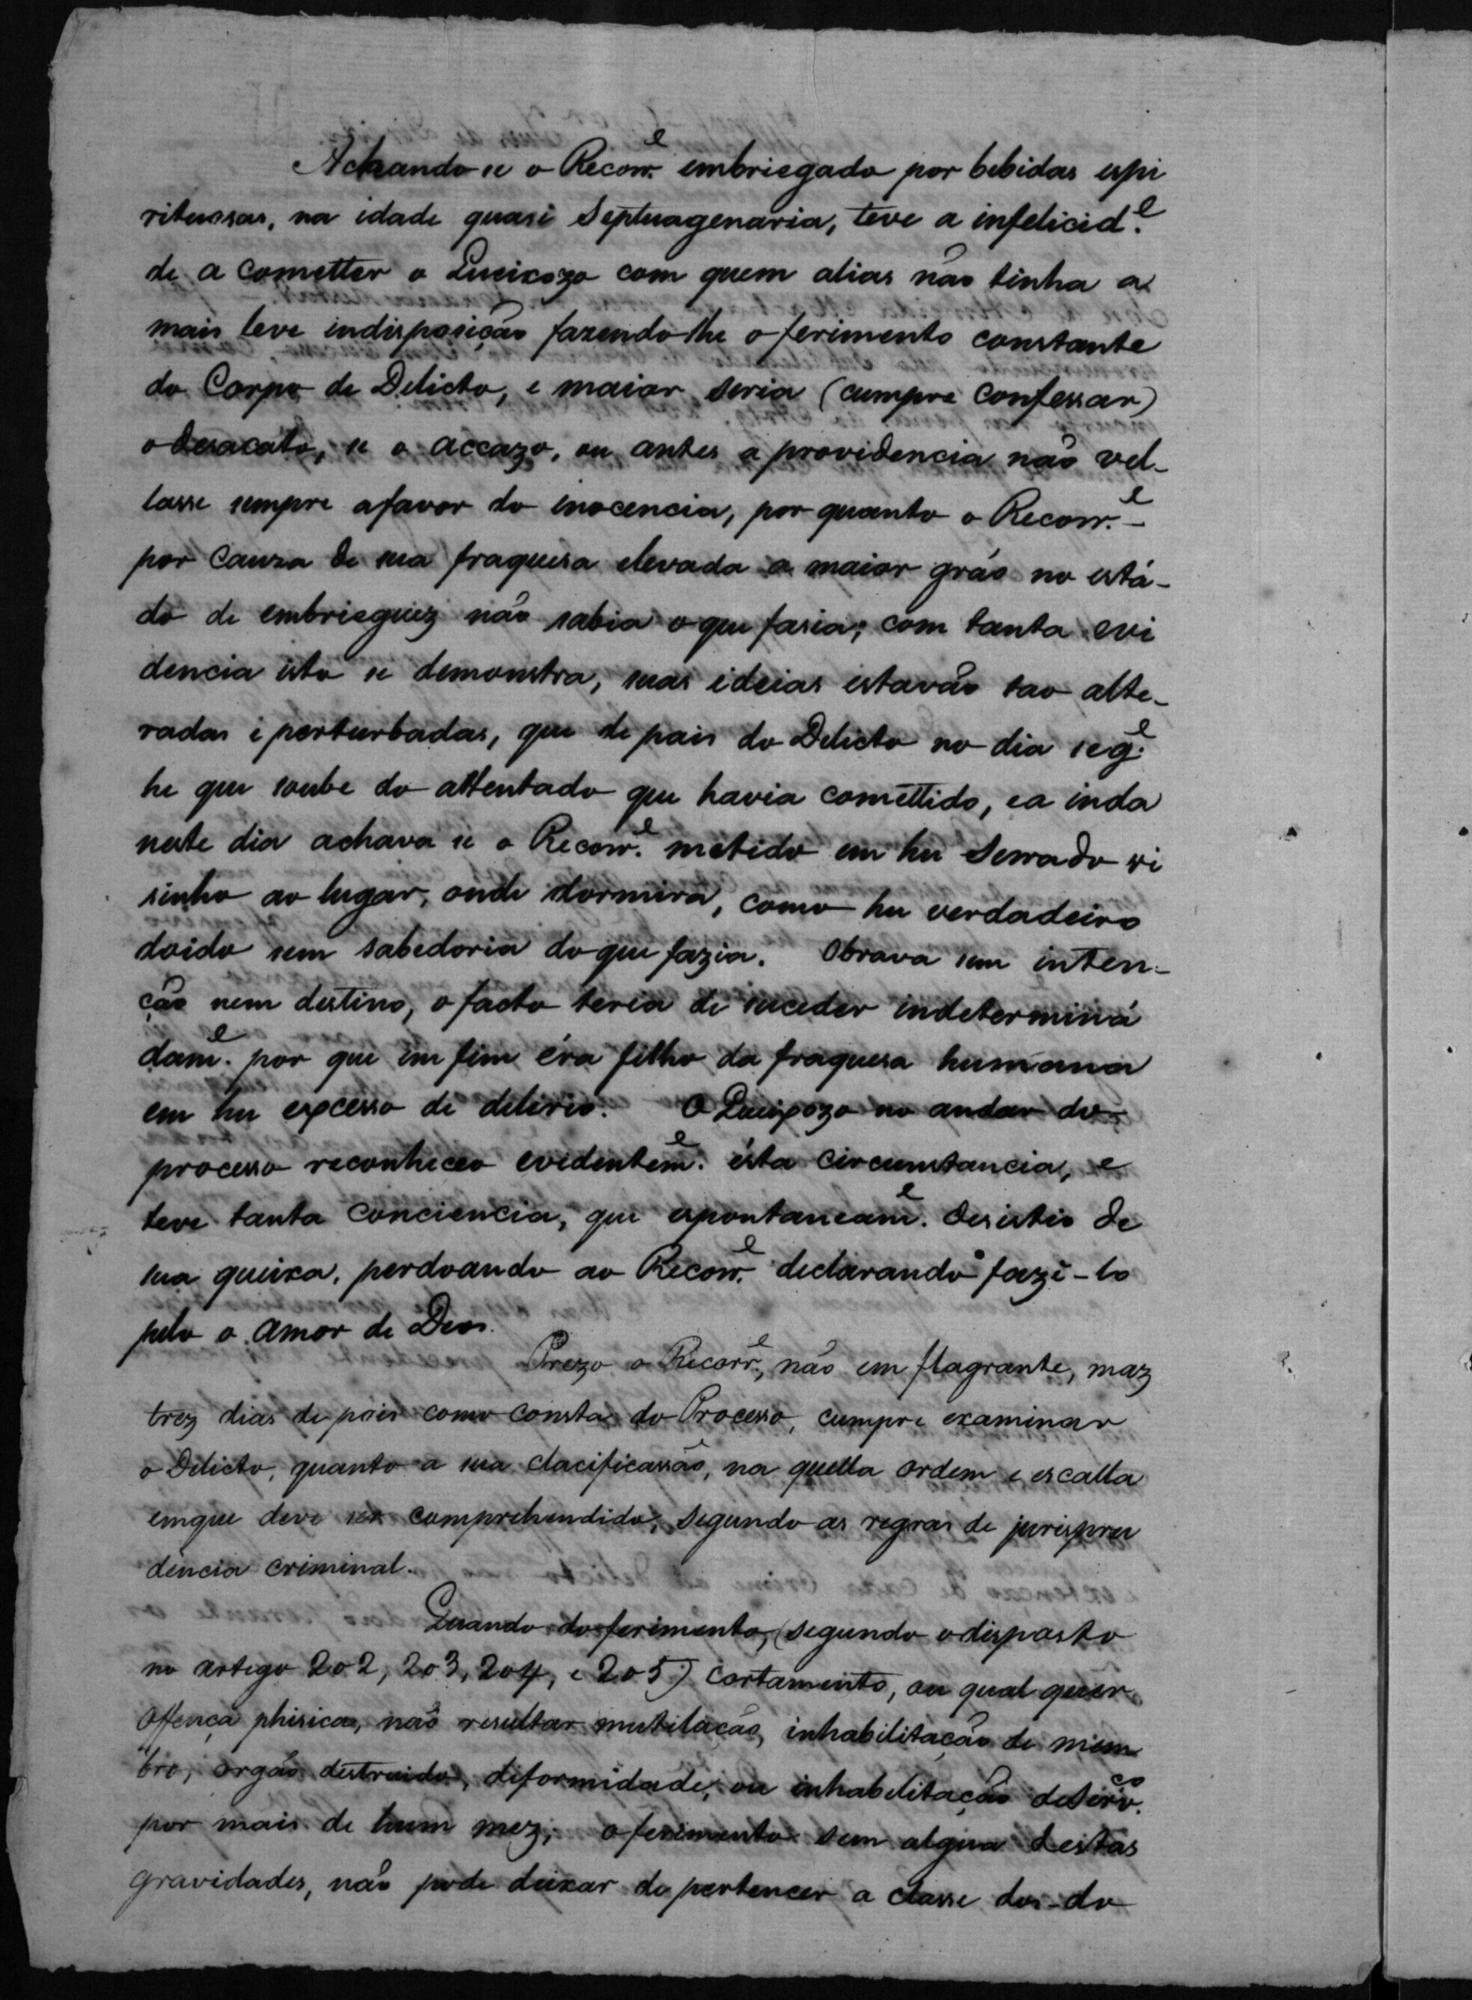 Achando se o Recorr.e embriegado por bebidas espi
rituosas, na idade quasi Septuagenaria, teve a infelicid.e
de a cometter o Queixozo com quem alias não tinha a
mais leve indisposição fazendo lhe o ferimento constante
do Corpo de Delicto, e maior seria (cumpre confessar)
o desacato, se o accazo, ou antes a providencia não vel-
lasse sempre afavor do inocencia, por quanto o Recorr.e -
por cauza de sua fraquesa elevada a maior gráo no está-
do de embrieguez não sabia o que fasia; com tanta evi
dencia isto se demonstra, suas ideias estavão tao alte-
radas i perturbadas, que de pois do Delicto no dia seg.e
he que soube do attentado que havia comettido, ea inda
neste dia achava se o Recorr.e metido em hu Serrado vi
sinho ao lugar, onde dormira, como hu verdadeiro
doido sem sabedoria do que fazia. Obrava sem inten-
ção nem destino, o facto teria de suceder indeterminá
dam.e por que em fim éra filho da fraquesa humana
em hu excesso de delirio. O Queixozo no andar do-
processo reconheceo evidentem.e ésta circumstancia, e
teve tanta conciencia, que espontaneam.e desistio de
sua queixa, perdoando ao Recorr.e declarando fazê-lo
pelo o amor de Deos.
Prezo o Recorr.e, não em flagrante, maz
trez dias de pois como consta do Processo, cumpre examinar
o Delicto, quanto a sua clacificassão, na quella ordem e escalla
emque deve ser comprehendido, segundo as regras de jurispru
dencia criminal.
Quando do ferimento, (segundo o disposto
no artigo 202, 203, 204, e 205) cortamento, ou qual quer
offença phisica, não resultar mutilação, inhabilitação de mem
bro, orgão distruido, deformidade, ou inhabilitação deserv.co
por mais de hum mez; o ferimento sem algua destas
gravidades, não pode deixar de pertencer a classe dos-do